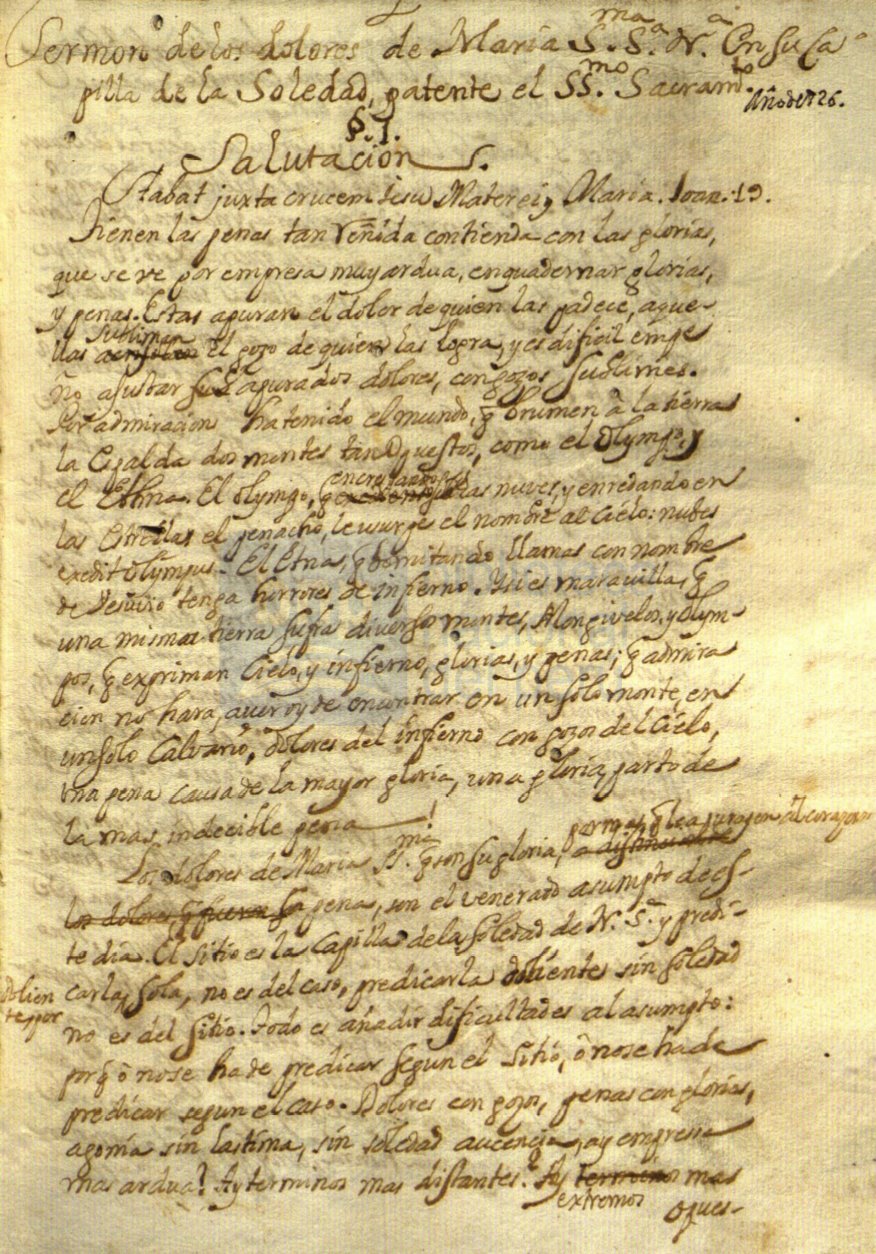 Sermon de los dolores de Maria S.ma S.a N.a En su Ca
pilla de la Soledad, patente el SS.mo Sacram.to
Año de 1726.
§. I.
Salutacion.
Stabat juxta crucem Iesu Mater eius Maria. Ioan. 19.
Tienen las penas tan reñida contienda con las glorias,
que se ve por empresa muy ardua, enquadernar glorias,
y penas. Estas apuran el dolor de quien las padece, aque-
subliman
llas el gozo de quien las logra, y es dificil empe
ño ajustar apurados dolores, con gozos sublimes.
Por admiracion ha tenido el mundo, q̃ brumen à la tierra
la espalda dos montes tan opuestos, como el Olympo, y
el Ethna. El Olympo, q̃ encrespandose las nuves, y enredando en
las Estrellas el penacho, le usurpe el nombre al Cielo: nubes
excedit Olympus. El Etna, q̃ bomitando llamas con nombre
de Vesuvio tenga horrores de infierno. Y si es maravilla, q̃
una misma tierra sufra diversos montes, Mongivelos, y Olym-
pos, q̃ expriman Cielo, y infierno, glorias, y penas; q̃ admira
cion no hara, aver oy de encontrar en un solo monte, en
un solo Calvario, dolores del infierno con gozos del Cielo,
una pena causa de la mayor gloria, una gloria, parto de
la mas indecible pena!
por mas q̃ le apurajen el corazon
Los dolores de Maria SS.ma q̃ son su gloria,
los dolores q̃ fueron su pena, son el venerado asumpto de es-
te dia. El sitio es la Capilla de la Soledad de N. S.a y predi-
carla sola, no es del caso, predicarla doliente sin soledad
Dolien
te, por
no es del sitio. Todo es añadir dificultades al asumpto:
porq̃ ò no se ha de predicar segun el sitio, ò no se ha de
predicar segun el caso. Dolores con gozos, penas con glorias,
agonia sin lastima, sin soledad aucencia, ay empressa
mas ardua? Ay terminos mas distantes? Ay terminos mas
extremos
opues-